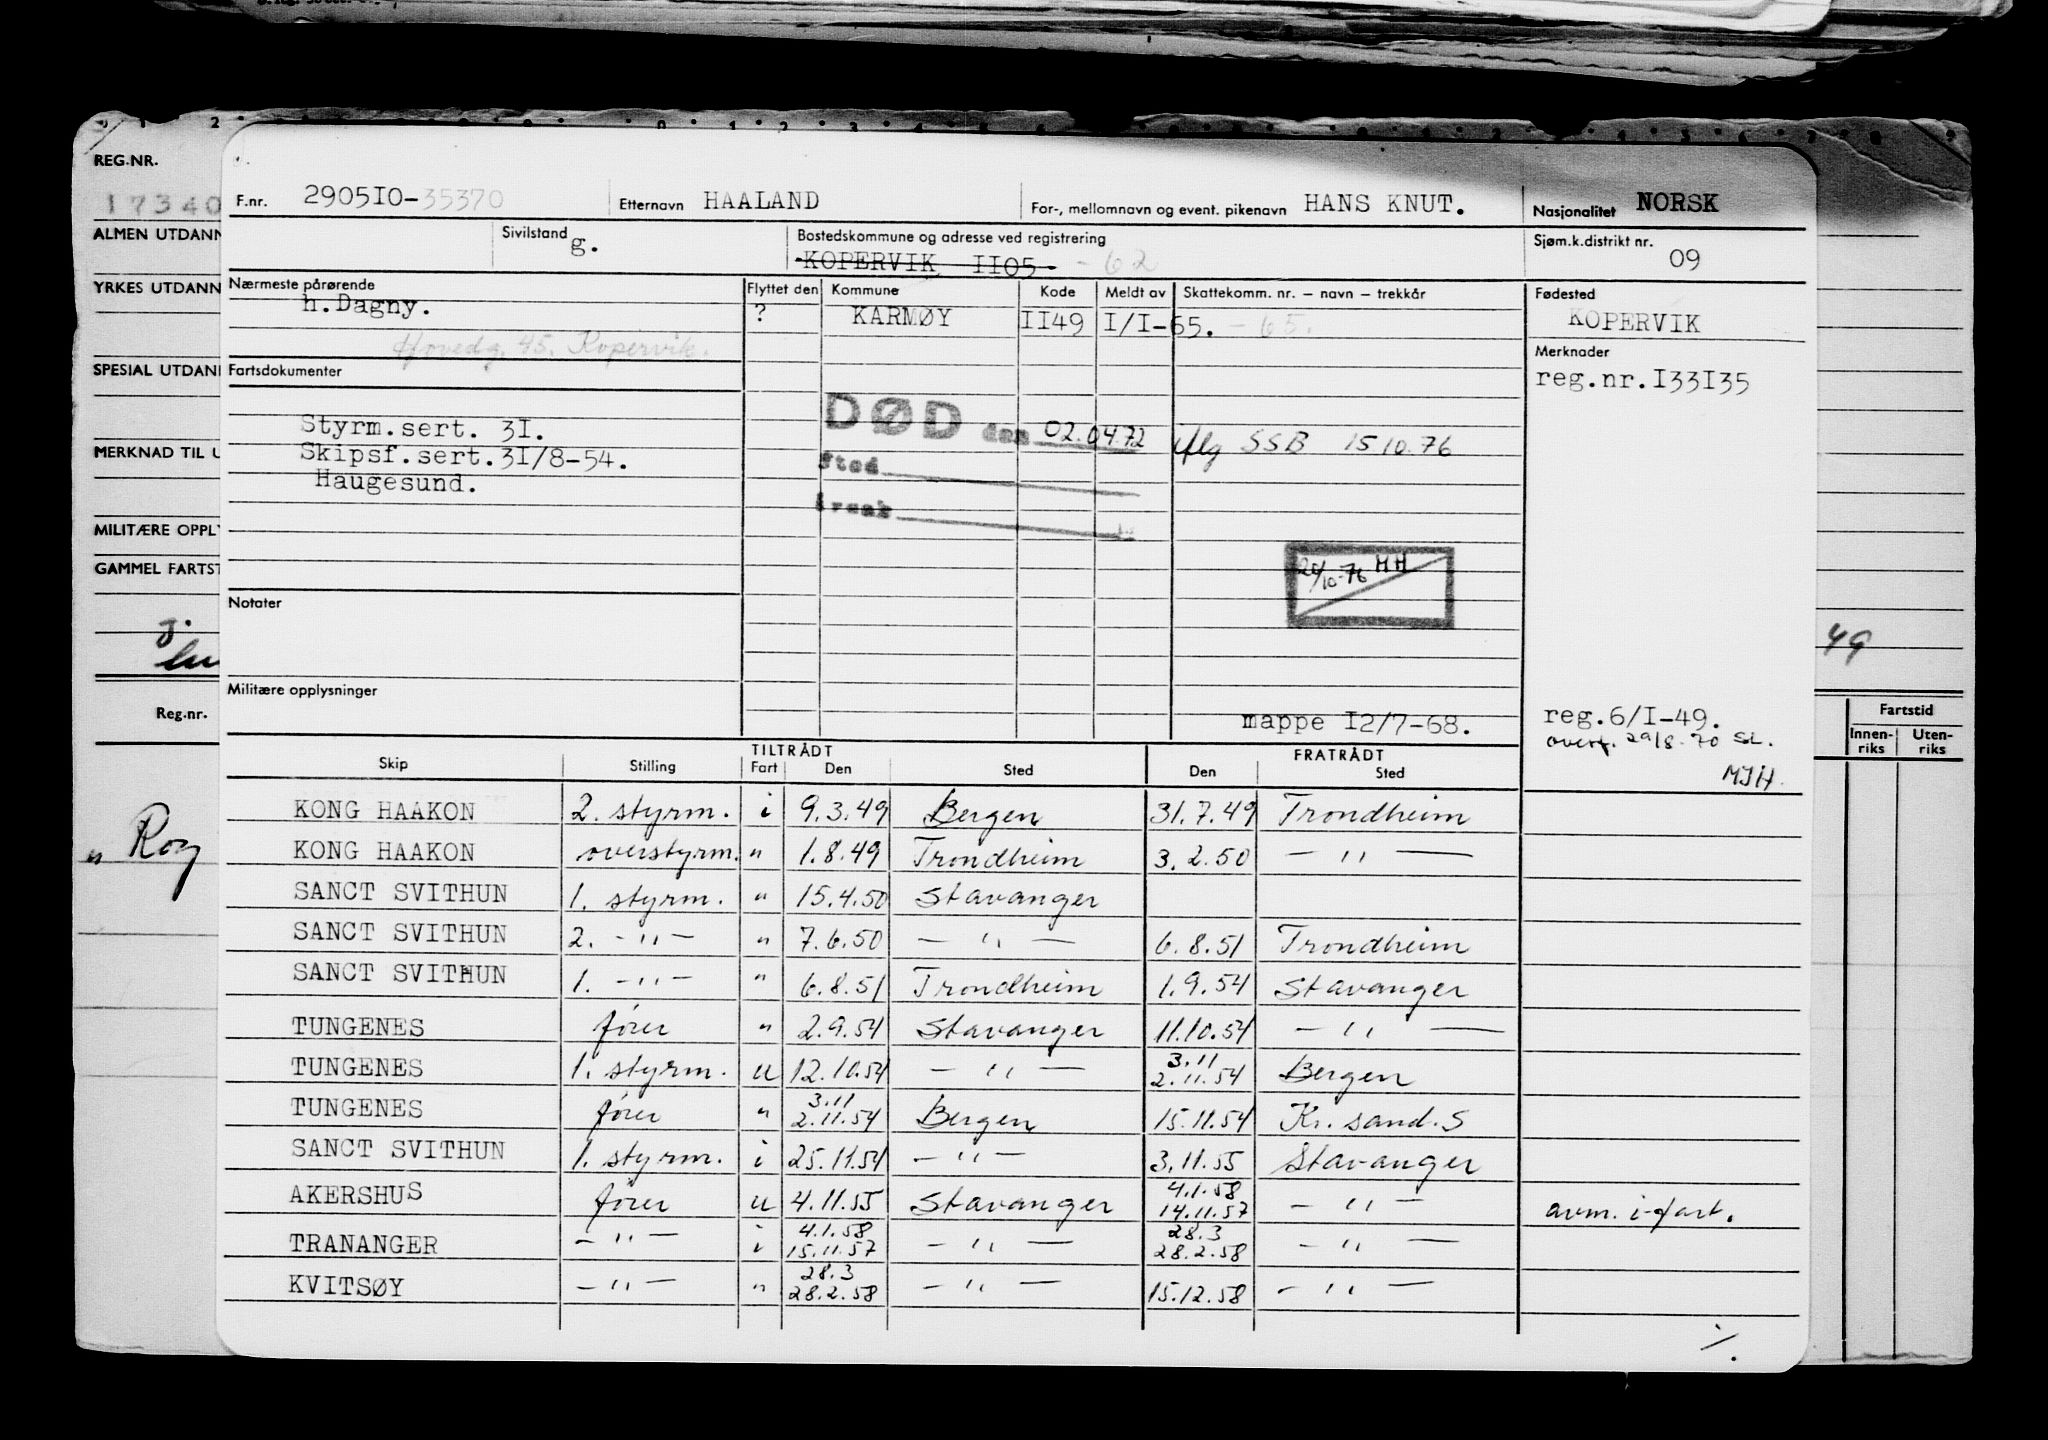 REG.NR.
17340
ALMEN UTDANN
YRKES UTDANN
SPESIAL UTDAN
MERKNAD TIL U
MILITÆRE OPPLY
GAMMEL FARTST
Reg.nr.
" Rog
49
Fartstid
Innen-riks Uten-riks
F.nr. 2905I0-35370 Etternavn HAALAND For-, mellomnavn og event. pikenavn HANS KNUT. Nasjonalitet NORSK
Sivilstand g. Bostedskommune og adresse ved registrering Sjøm.k.distrikt nr. 09
KOPERVIK II05- -62
Nærmeste pårørende Flyttet den Kommune Kode Meldt av Skattekomm. nr. – navn – trekkår Fødested
h.Dagny. ? KARMØY II49 I/I-65. -65. KOPERVIK
Hovedg. 45. Kopervik.
Fartsdokumenter Merknader
reg.nr.I33I35
Styrm.sert. 3I. DØD den 02.04.72 iflg SSB 15 10.76
Skipsf.sert.3I/8-54. Sted
Haugesund. årsak
20/10-76 HH
Notater
Militære opplysninger
mappe I2/7-68. reg.6/I-49.
overf. 29/8-70 SL.
MJH.
TILTRÅDT FRATRÅDT
Skip Stilling Fart Den Sted Den Sted
KONG HAAKON 2. styrm. i 9.3.49 Bergen 31.7.49 Trondheim
KONG HAAKON overstyrm. " 1.8.49 Trondheim 3.2.50 — " —
SANCT SVITHUN 1. styrm. " 15.4.50 Stavanger
SANCT SVITHUN 2. -"- " 7.6.50 — " — 6.8.51 Trondheim
SANCT SVITHUN 1. -"- " 6.8.51 Trondheim 1.9.54 Stavanger
TUNGENES fører " 2.9.54 Stavanger 11.10.54 — " —
TUNGENES 1. styrm. u 12.10.54 — " — 3.11 2.11.54 Bergen
TUNGENES fører " 3.11 2.11.54 Bergen 15.11.54 Kr. sand. S
SANCT SVITHUN 1. styrm. i 25.11.54 — " — 3.11.55 Stavanger
AKERSHUS fører u 4.11.55 Stavanger 4.1.58 14.11.57 — " — avm. i-fart.
TRANANGER — " — i 4.1.58 15.11.57 — " — 28.3 28.2.58 — " —
KVITSØY — " — " 28.3 28.2.58 — " — 15.12.58 — " —